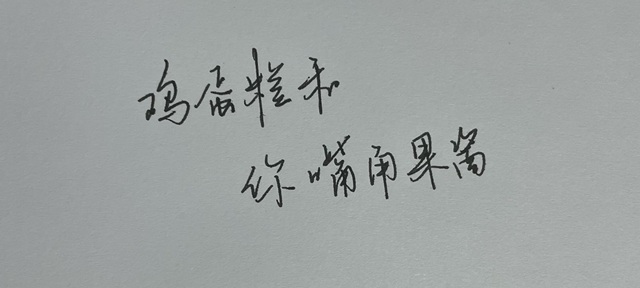 鸡蛋糕和
你嘴角果酱